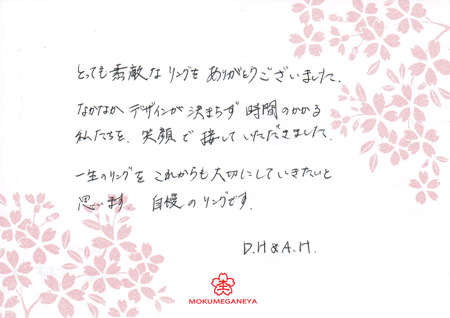 とっても素敵なリングをありがとうございました.
なかなかデザインが決まらず時間のかかる
私たちを、笑顔で接していただきました.
一生のリングをこれからも大切にしていきたいと
思います. 自慢のリングです.
D.H & A.H.
MOKUMEGANEYA